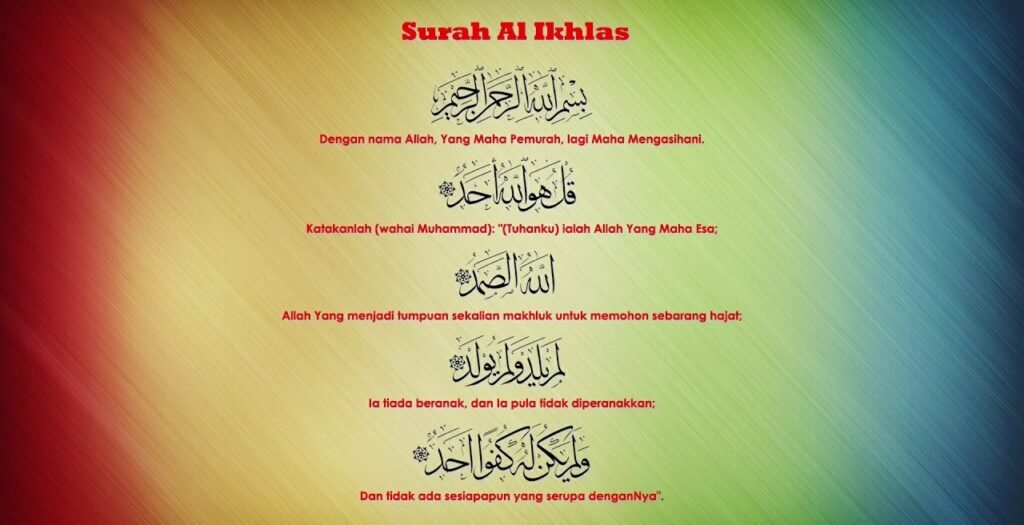 Surah Al Ikhlas
بِسْمِ ٱللَّهِ ٱلرَّحْمَٰنِ ٱلرَّحِيمِ
Dengan nama Allah, Yang Maha Pemurah, lagi Maha Mengasihani.
قُلْ هُوَ ٱللَّهُ أَحَدٌ
Katakanlah (wahai Muhammad): "(Tuhanku) ialah Allah Yang Maha Esa;
ٱللَّهُ ٱلصَّمَدُ
Allah Yang menjadi tumpuan sekalian makhluk untuk memohon sebarang hajat;
لَمْ يَلِدْ وَلَمْ يُولَدْ
Ia tiada beranak, dan Ia pula tidak diperanakkan;
وَلَمْ يَكُن لَّهُۥ كُفُوًا أَحَدٌ
Dan tidak ada sesiapapun yang serupa denganNya".